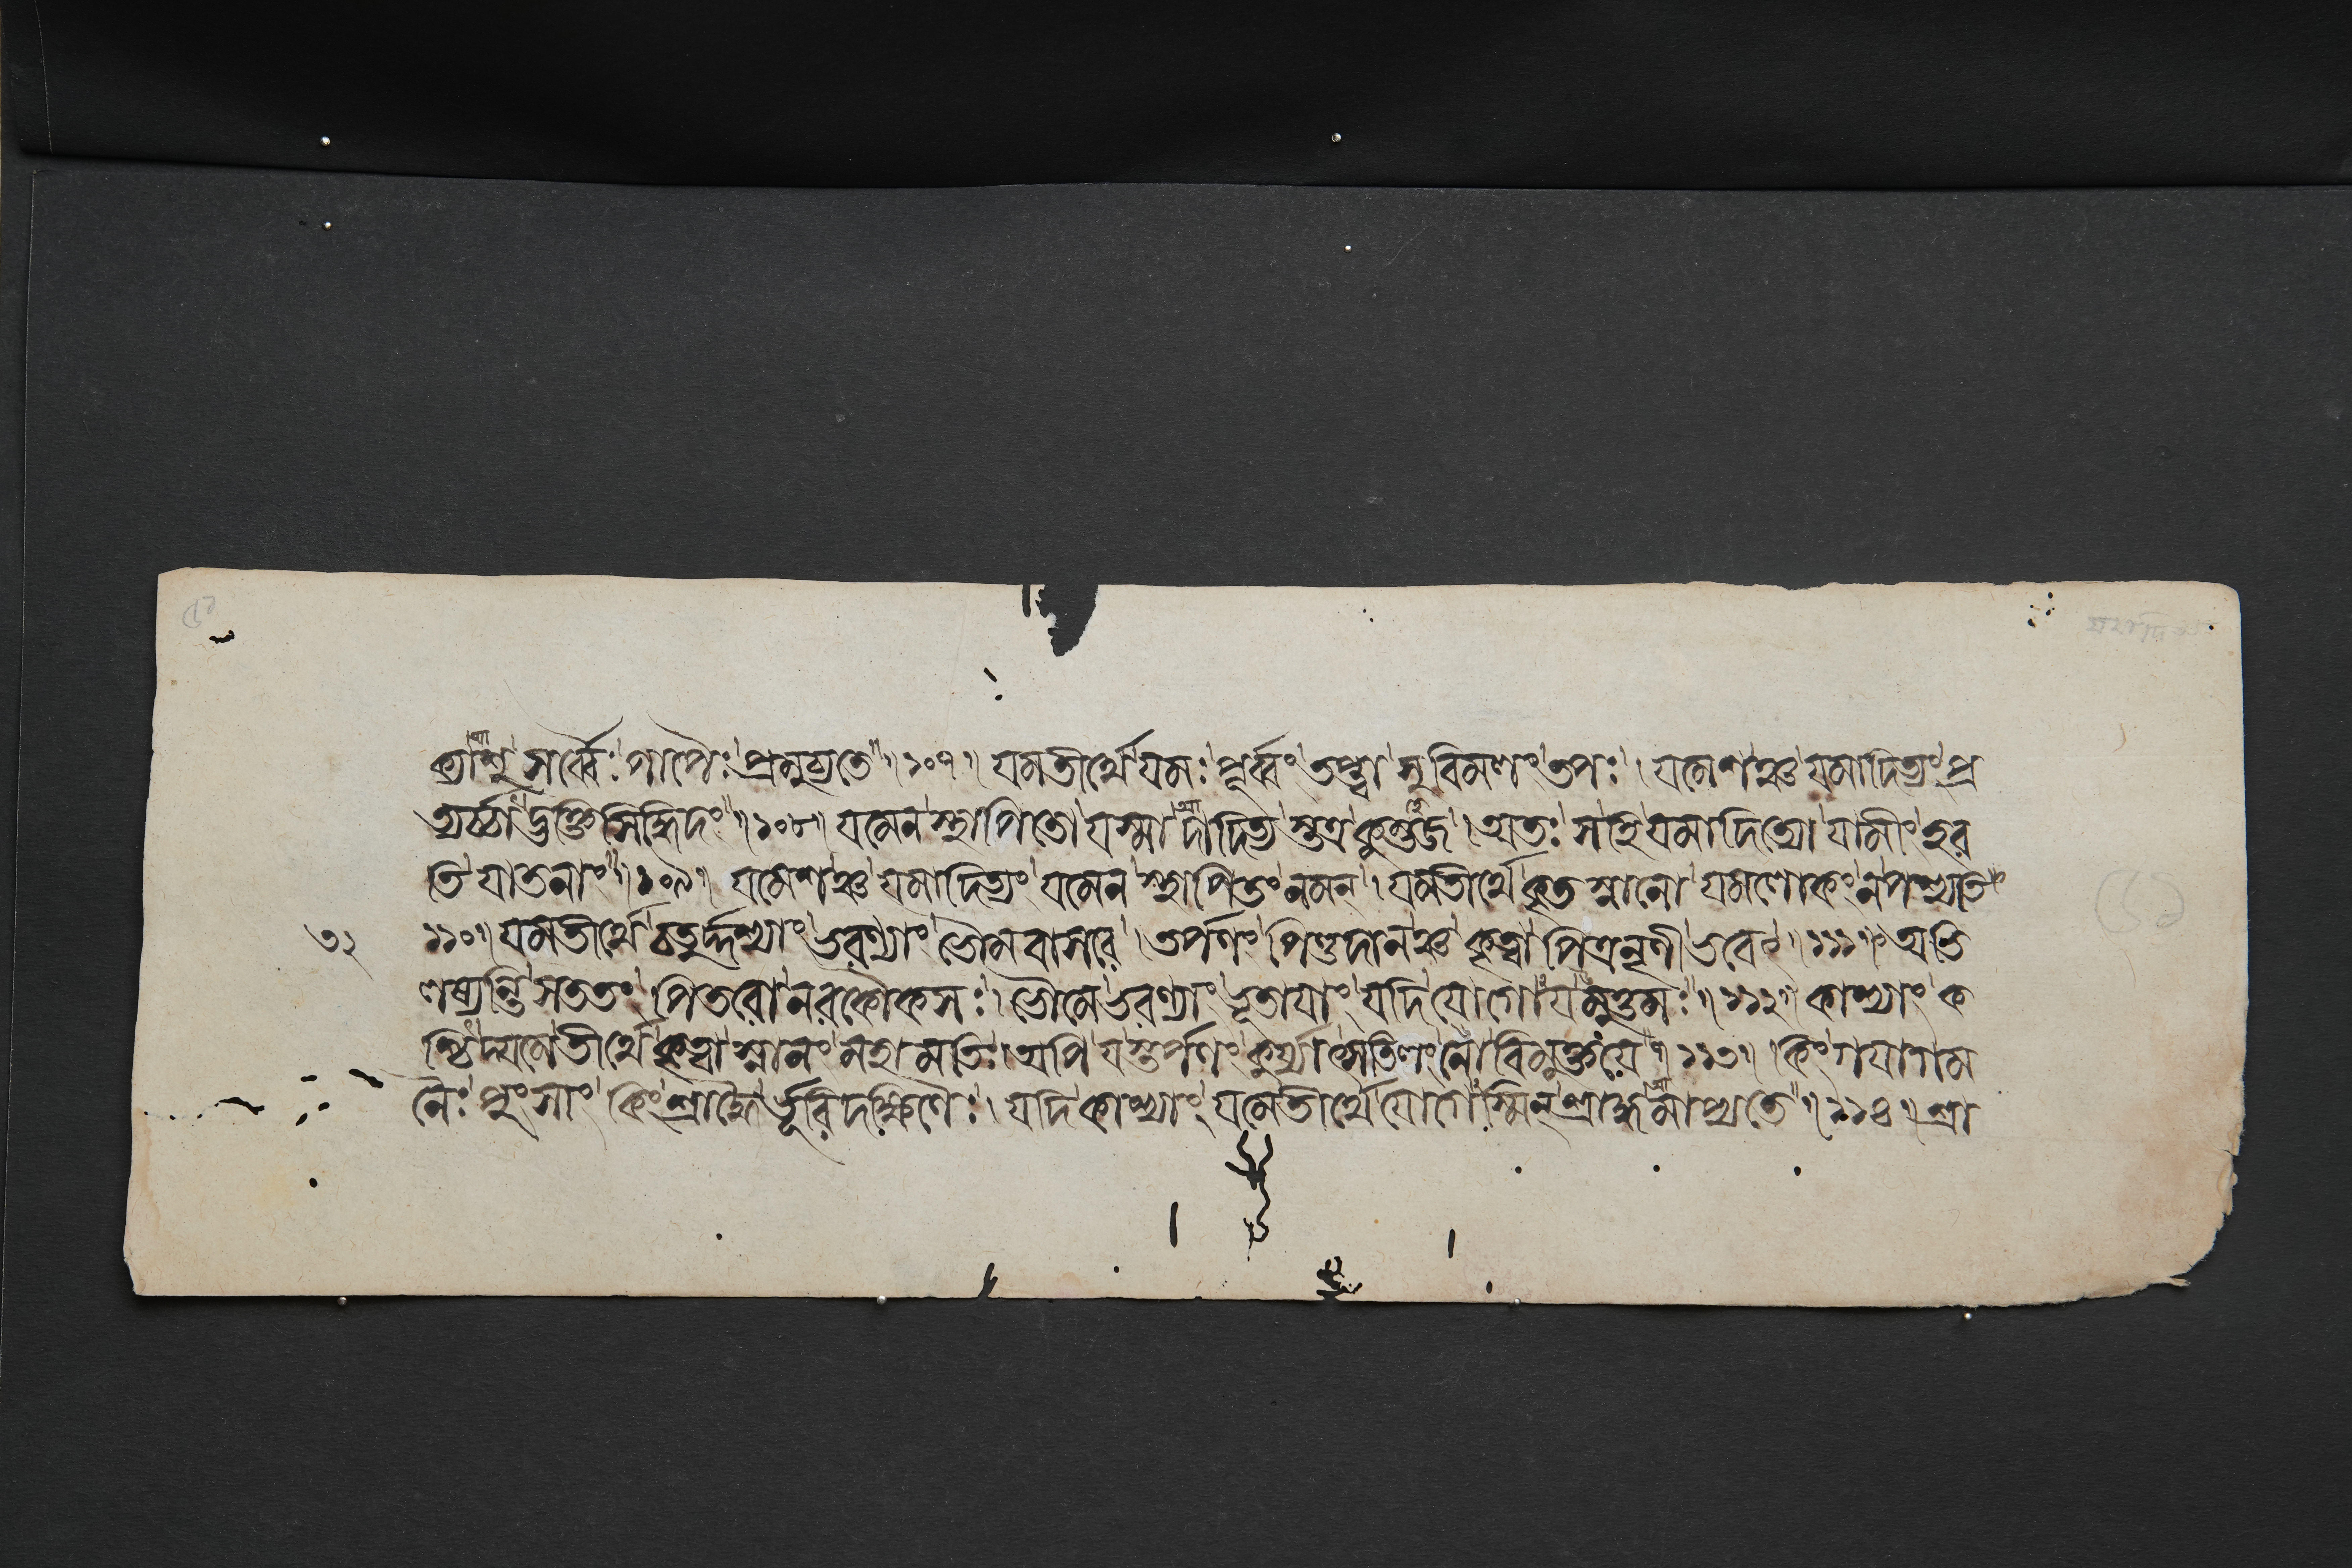 ক্যাশু সর্ব্বৈঃ পাপৈঃ প্রমুচ্যতে ॥ ১০৭ ॥ যমতীর্থে যমঃ পূর্ব্বং তপ্ত্বা সুবিমলং তপঃ । যমেশঞ্চ যমাদিত্যং প্র
ত্যষ্ঠাদ্ভক্তিসিদ্ধিদং ॥ ১০৮ ॥ যমেন স্থাপিতো যস্মাদাদিত্য স্তত্র কুম্ভজ । অতঃ স হি যমাদিত্যো যামীং হর
তি যাতনাং ॥ ১০৯ ॥ যমেশঞ্চ যমাদিত্যং যমেন স্থাপিতং নমন্ । যমতীর্থে কৃত স্নানো যমলোকং ন পশ্যতি
৩২ ১১০ ॥ যমতীর্থে চতুর্দ্দশ্যাং ভরণ্যাং ভৌমবাসরে । তর্পণং পিণ্ডদানঞ্চ কৃত্বা পিত্রনৃণী ভবেৎ ॥ ১১১ ॥ অভি
লষ্যন্তি সততং পিতরো নরকৌকসঃ । ভৌমে ভরণ্যাং ভূতাযাং যদি যোগো যমুত্তমঃ ॥ ১১২ ॥ কাশ্যাং ক
শ্চিদ্যমেতীর্থে কৃত্বা স্নানং মহামতিঃ । অপি যস্তর্পণং কুর্য্যাৎসতিলং নো বিমুক্তয়ে ॥ ১১৩ ॥ কিং গযাগম
নৈঃ পুংসাং কিং শ্রাদ্ধৈর্ভূরিদক্ষিণৈঃ । যদি কাশ্যাং যমেতীর্থে যোগেস্মিন্ শ্রাদ্ধমাপ্যতে ॥ ১১৪ ॥ শ্রা